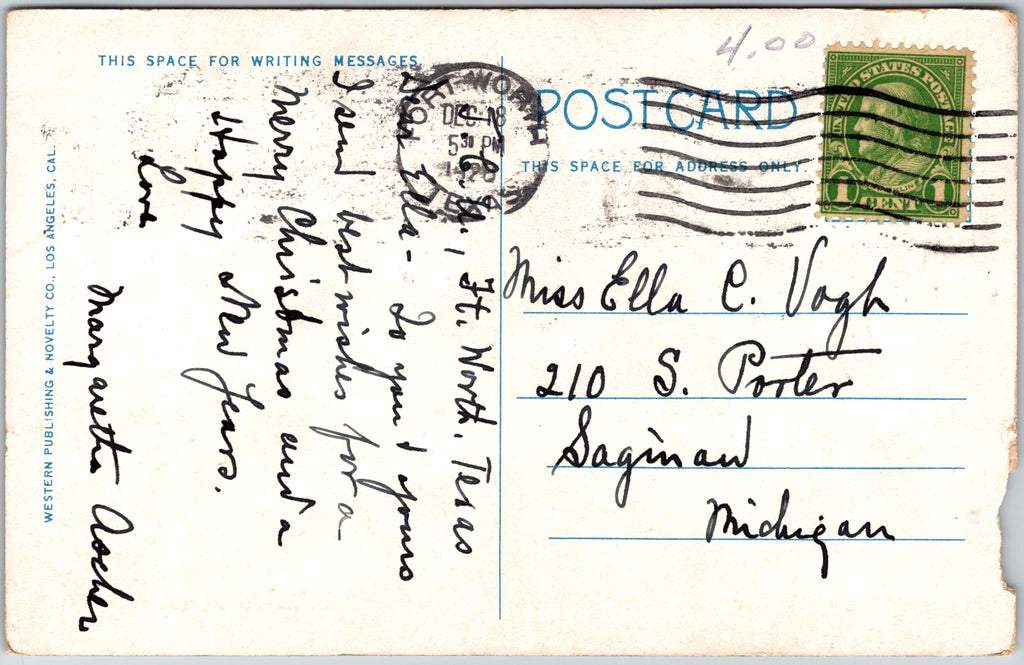 4.00
THIS SPACE FOR WRITING MESSAGES
POSTCARD
THIS SPACE FOR ADDRESS ONLY
FORT WORTH
DEC 18
5 30 PM
UNITED STATES POSTAGE
1 CENT 1
Ft. Worth, Texas
Dear Ella - To you & yours
I send best wishes for a
Merry Christmas and a
Happy New Years.
Love
Margaretha
Miss Ella C. Vogh
210 S. Porter
Saginaw
Michigan
WESTERN PUBLISHING & NOVELTY CO., LOS ANGELES, CAL.